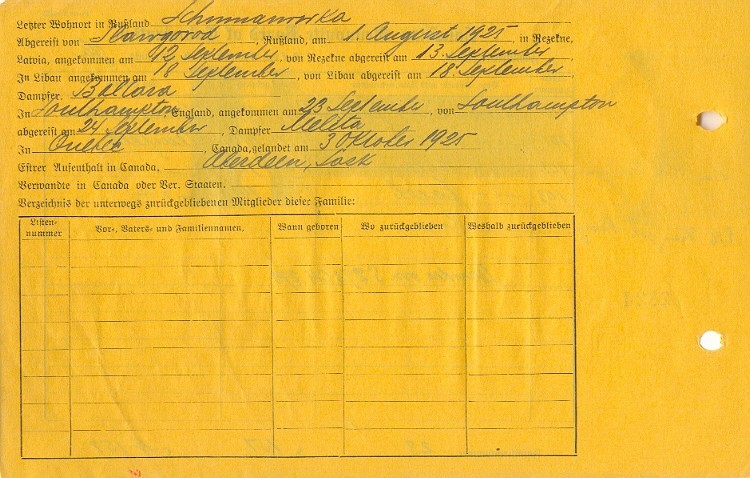 Letzter Wohnort in Rußland Schumanowka
Abgereist von Slawgorod, Rußland, am 1. August 1925, in Rezekne,
Latvia, angekommen am 12 September, von Rezekne abgereist am 13. September
In Libau angekommen am 18 September, von Libau abgereist am 18. September
Dampfer Baltara
In Southampton England, angekommen am 23 September, von Southampton
abgereist am 24 September, Dampfer Melita
In Quebec, Canada, gelandet am 3 Oktober 1925
Erster Aufenthalt in Canada, Aberdeen, Sask
Verwandte in Canada oder Ver. Staaten.
Verzeichnis der unterwegs zurückgebliebenen Mitglieder dieser Familie:
Listen-nummer Vor-, Vaters- und Familiennamen, Wann geboren Wo zurückgeblieben Weshalb zurückgeblieben